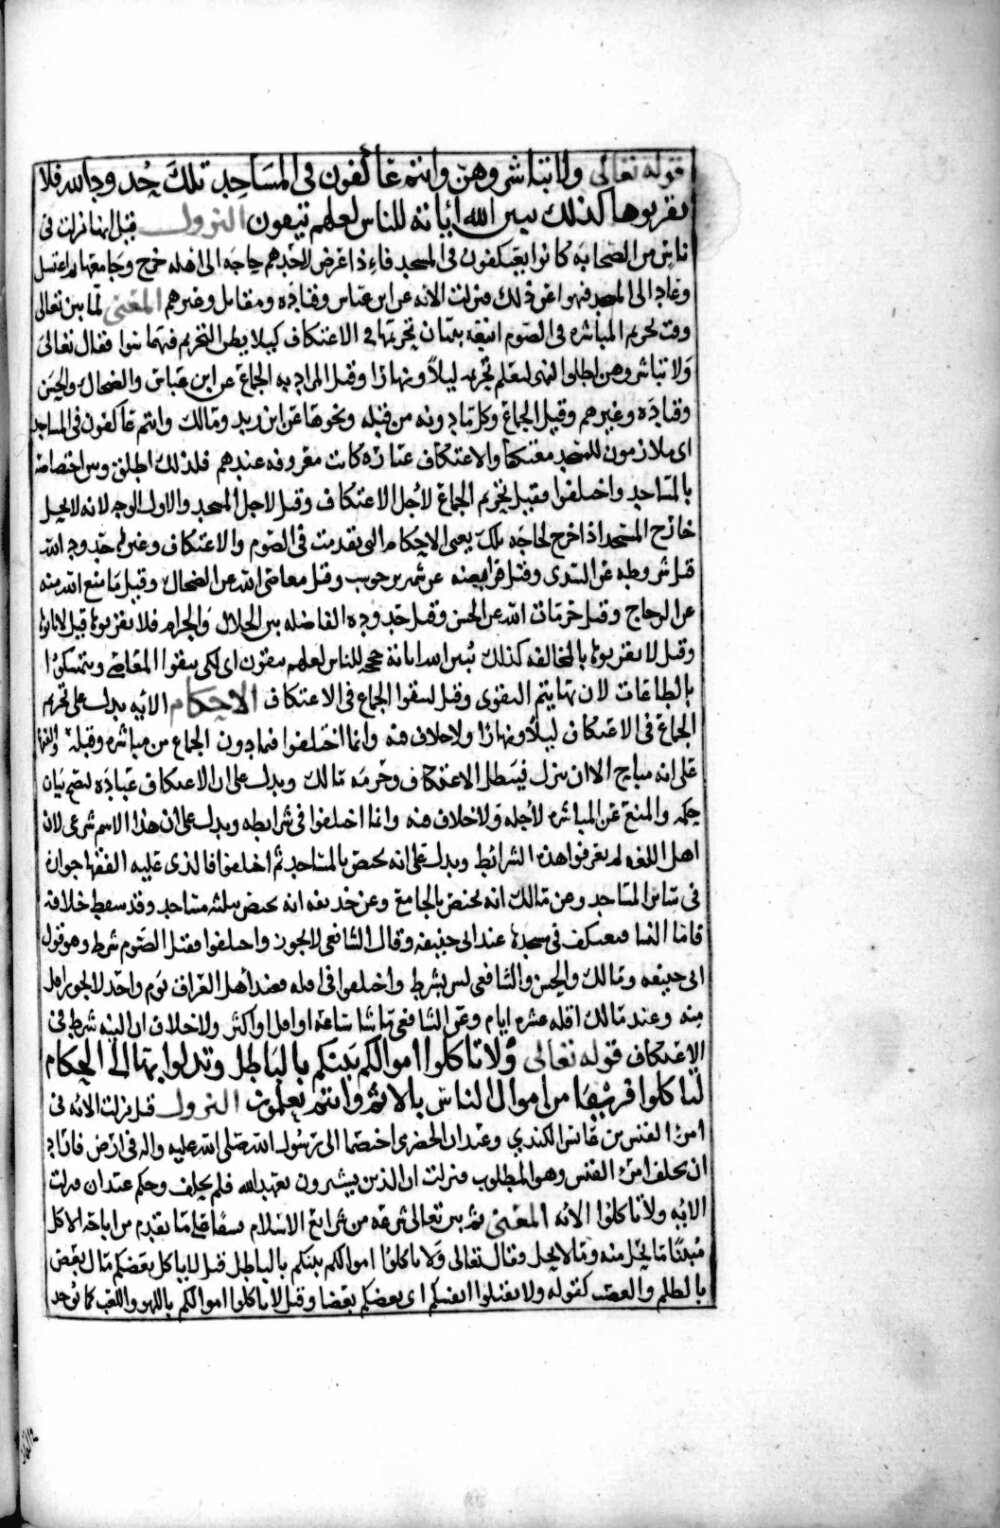 قوله تعالى ولا تباشروهن وانتم عاكفون في المساجد تلك حدود الله فلا
تقربوها كذلك يبين الله اياته للناس لعلهم يتقون النزول قيل انها نزلت في
ناس من الصحابه كانوا يعتكفون في المسجد فاذا عرض لاحدهم حاجه الى اهله خرج وجامعها ثم اغتسل
وعاد الى المسجد فنهوا عن ذلك فنزلت الايه عن ابن عباس وقتاده ومقاتل وغيرهم المعنى لما بين تعالى
وقت تحريم المباشره في الصوم اتبعه ببيان تحريمها في الاعتكاف كيلا يظن التحريم فيهما سوا فقال تعالى
ولا تباشروهن اطلق النهي ليعلم تحريمه ليلا ونهارا وقيل المراد به الجماع عن ابن عباس والضحاك والحسن
وقتاده وغيرهم وقيل الجماع وكل ما دونه من قبله ونحوها عن ابن زيد ومالك وانتم عاكفون في المساجد
اي ملازمون للمسجد معتكفا والاعتكاف عباره كانت معروفه عندهم فلذلك اطلق وبين اختصاصه
بالمساجد واختلفوا فقيل تحريم الجماع لاجل الاعتكاف وقيل لاجل المسجد والاول الوجه لانه لا يحل
خارج المسجد اذا خرج لحاجه تلك يعني الاحكام التي تقدمت في الصوم والاعتكاف وغيرهم حدود الله
قيل شروطه عن السدي وقيل فرايضه عن شهر بن حوشب وقيل معاصي الله عن الضحاك وقيل ما منع الله منه
عن الزجاج وقيل حرمات الله عن الحسن وقيل حدوده الفاصله بين الحلال والحرام فلا تقربوها قيل لا تاتوها
وقيل لا تقربوها بالمخالفه كذلك يبين الله اياته حججه للناس لعلهم يتقون اي لكي يتقوا المعاصي ويتمسكوا
بالطاعات لان بهما يتم التقوى وقيل ليتقوا الجماع في الاعتكاف الاحكام الايه يدل على تحريم
الجماع في الاعتكاف ليلا ونهارا ولا خلاف فيه وانما اختلفوا فيما دون الجماع من مباشره وقبله
على انه مباح الا ان ينزل فيبطل الاعتكاف وحرمه مالك ويدل على ان الاعتكاف عباده لصح بيان
حكمه والمنع عن المباشره لاجله ولا خلاف فيه وانما اختلفوا في شرايطه ويدل على ان هذا الاسم شرعي لان
اهل اللغه لم يعرفوا هذه الشرائط ويدل على انه يختص بالمساجد ثم اختلفوا فالذي عليه الفقها جوازه
في سائر المساجد وعن مالك انه يختص بالجامع وعن حذيفه انه يختص بثلثه مساجد وقد سقط خلافه
فاما النسا فيعتكف في مسجدها عند ابي حنيفه وقال الشافعي لا يجوز واختلفوا فقيل الصوم شرط وهو قول
ابي حنيفه ومالك والحسن والشافعي ليس بشرط واختلفوا في اقله فعند اهل العراق يوم واحد لا يجوز اقل
منه وعند مالك اقله عشره ايام وعن الشافعي ما شا ساعه او اقل او اكثر ولا خلاف ان النيه شرط في
الاعتكاف قوله تعالى ولا تاكلوا اموالكم بينكم بالباطل وتدلوا بها الى الحكام
لتاكلوا فريقا من اموال الناس بالاثم وانتم تعلمون النزول قيل نزلت الايه في
امرئ القيس بن عابس الكندي وعبدان الحضرمي اختصما الى رسول الله صلى الله عليه واله في ارض فاراد
ان يحلف امرئ القيس وهو المطلوب فنزلت ان الذين يشترون بعهد الله فلم يحلف وحكم عبدان فنزلت
الايه ولا تاكلوا الايه المعنى ثم بين تعالى شريعه من شرائع الاسلام نسقا على ما تقدم من اباحه الاكل
مبينا ما يحل منه وما لا يحل وقال تعالى ولا تاكلوا اموالكم بينكم بالباطل قيل لا ياكل بعضكم مال بعض
بالظلم والغصب كقوله ولا تقتلوا انفسكم اي بعضكم بعضا وقيل لا تاكلوا اموالكم باللهو واللعب كما يوجد